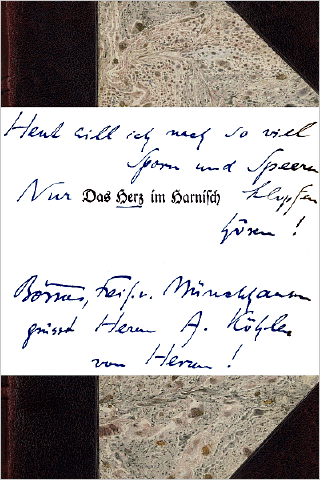 Heut will ich nach so viel
Sporn und Speeren
Nur Das Herz im Harnisch klopfen
hören!
Börries, Frh. v. Münchhausen
grüsst Herrn A. Köhler
von Herzen!